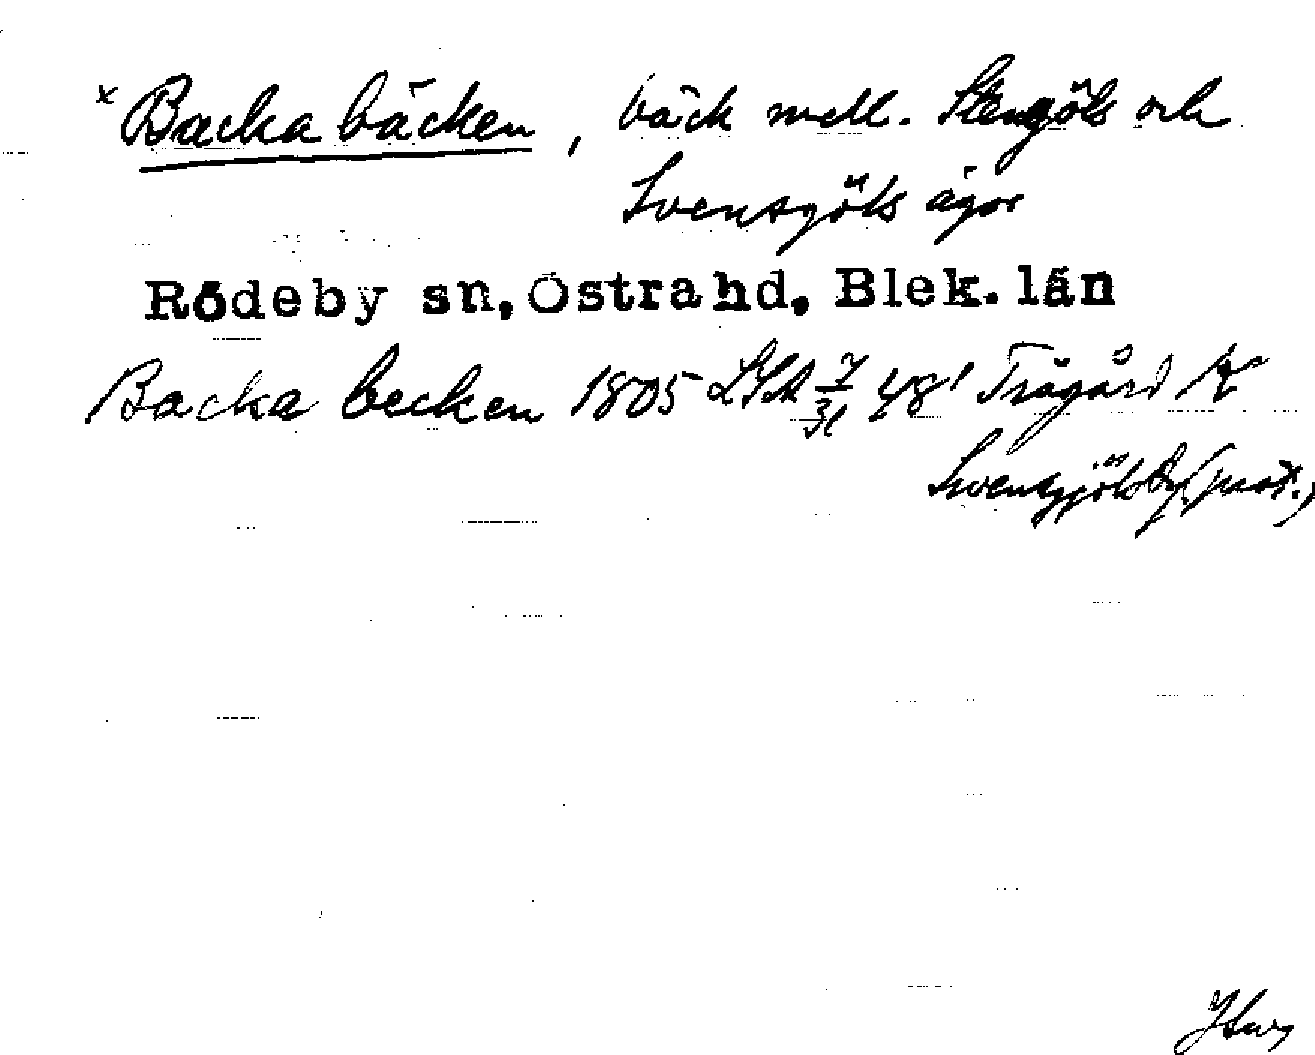 x Backa bäcken, bäck mell. Stengöls och
Svensgöls ägor
Rödeby sn, Östra hd, Blek. län
Backa becken 1805 LSA 7/31 48'
Svensgöls by (prot.)